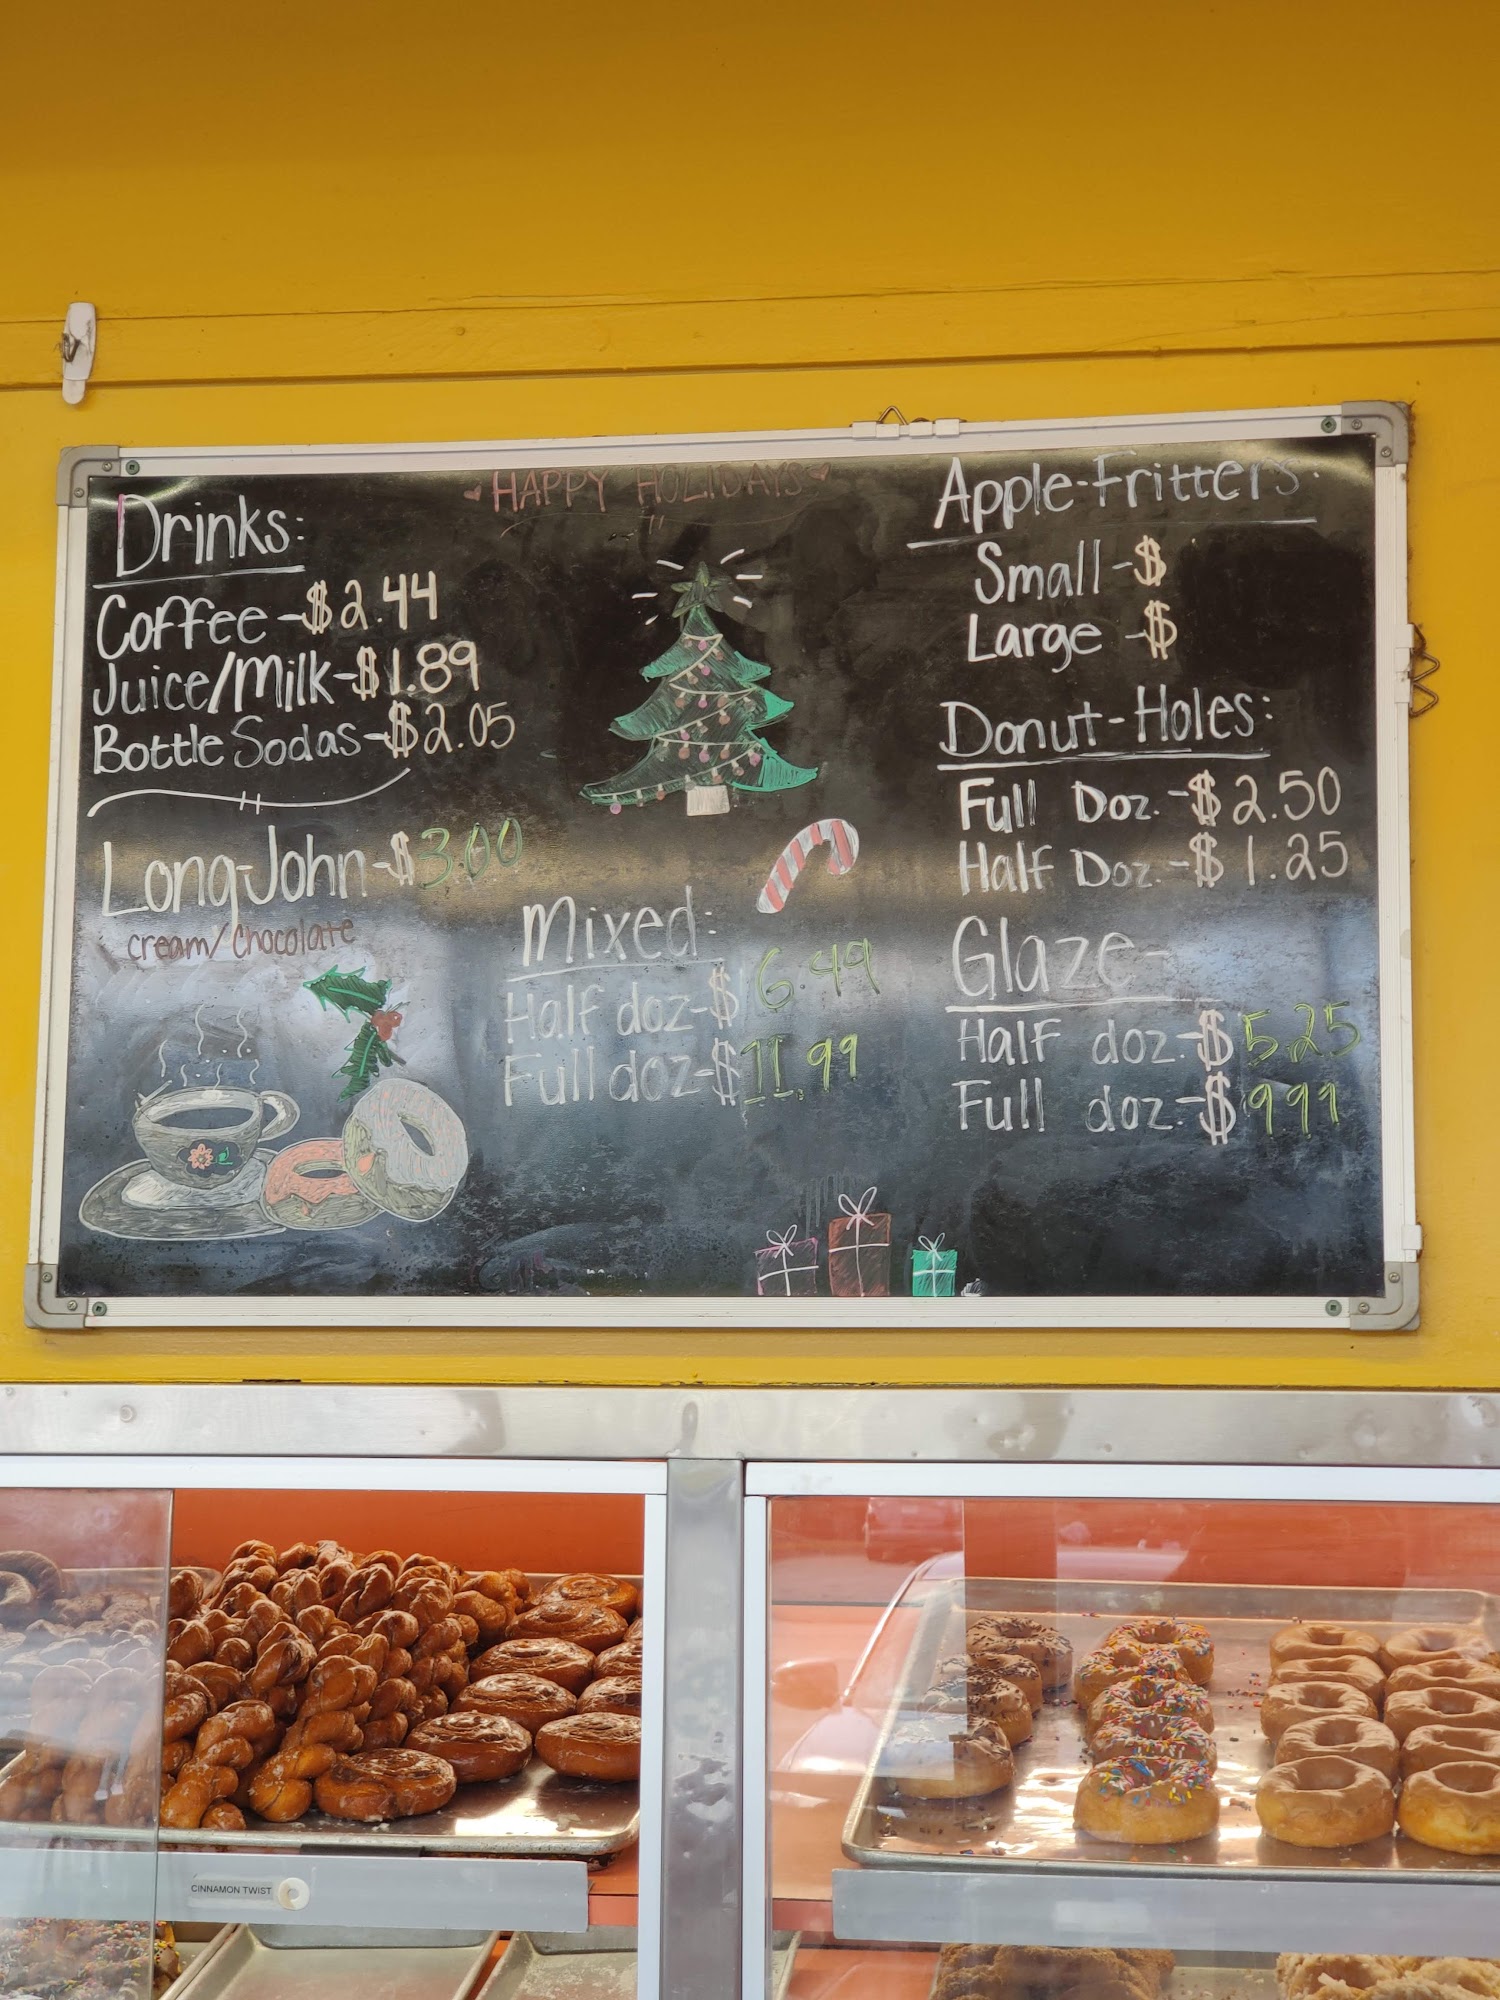 HAPPY HOLIDAYS
Drinks:
Coffee-$2.44
Juice/Milk-$1.89
Bottle Sodas-$2.05
Long-John-$3.00
cream/Chocolate
Mixed:
Half doz-$6.49
Full doz-$11.99
Apple-Fritters:
Small-$
Large-$
Donut-Holes:
Full Doz.-$2.50
Half Doz.-$1.25
Glaze-
Half doz.-$5.25
Full doz.-$9.99
CINNAMON TWIST